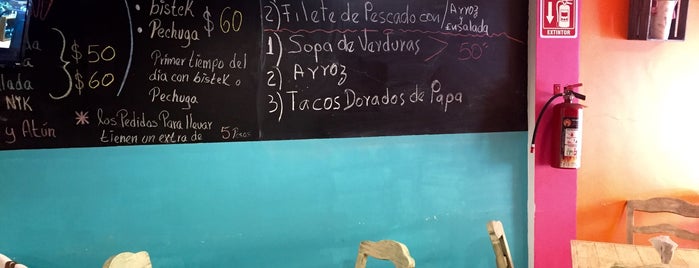 bistek
Pechuga
$60
Primer tiempo del
día con bistek o
Pechuga
$50
$60
lada
NYK
y Atún
* Los Pedidos Para llevar
tienen un extra de 5 Pesos
2) Filete de Pescado con Arroz/
Ensalada
1) Sopa de Verduras
50
2) Arroz
3) Tacos Dorados de Papa
EXTINTOR